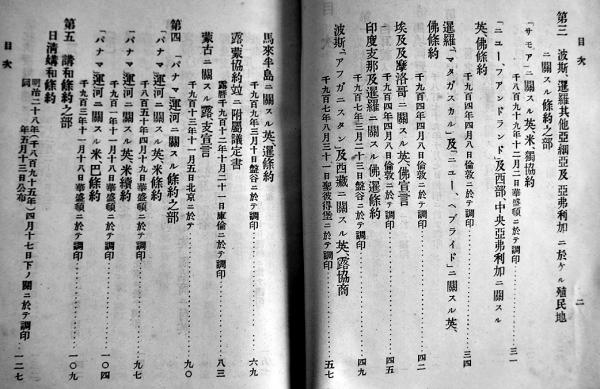 目次
二
第三 波斯、暹羅其他亞細亞及亞弗利加ニ於ケル殖民地
ニ關スル條約之部
「サモア」ニ關スル英、米、獨協約
千八百九十九年十二月二日華盛頓ニ於テ調印……三一
「ニュー、フアンドランド」及西部、中央亞弗利加ニ關スル
英、佛條約
千九百四年四月八日倫敦ニ於テ調印……三四
暹羅、「マダガスカル」及「ニュー、ヘブライド」ニ關スル英、
佛條約
千九百四年四月八日倫敦ニ於テ調印……四二
埃及及摩洛哥ニ關スル英、佛宣言
千九百四年四月八日倫敦ニ於テ調印……四五
印度支那及暹羅ニ關スル佛、暹條約
千九百七年三月二十三日盤谷ニ於テ調印……四九
波斯、「アフガニスタン」及西藏ニ關スル英、露協商
千九百七年八月三十一日聖彼得堡ニ於テ調印……五七
馬來半島ニ關スル英、暹條約
千九百九年三月十日盤谷ニ於テ調印……六九
露、蒙協約竝ニ附屬議定書
露曆千九百十二年十月二十一日庫倫ニ於テ調印……八三
蒙古ニ關スル露、支宣言
千九百十三年十一月五日北京ニ於テ調印……九〇
第四 「パナマ」運河ニ關スル條約之部
「パナマ」運河ニ關スル英、米條約
千八百五十年四月十九日華盛頓ニ於テ調印……九七
「パナマ」運河ニ關スル英、米續約
千九百一年十一月十八日華盛頓ニ於テ調印……一〇四
「パナマ」運河ニ關スル米、巴條約
千九百三年十一月十八日華盛頓ニ於テ調印……一〇九
第五 講和條約之部
日清媾和條約
明治二十八年(千八百九十五年)四月十七日下ノ關ニ於テ調印
同年五月十三日公布……一二七
目次